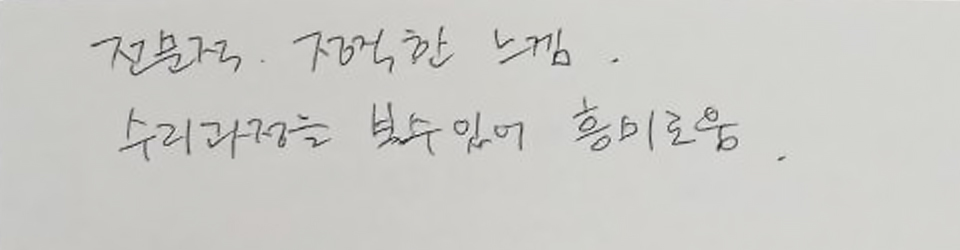 전문적. 정직한 느낌.
수리과정을 볼수있어 흥미로움.